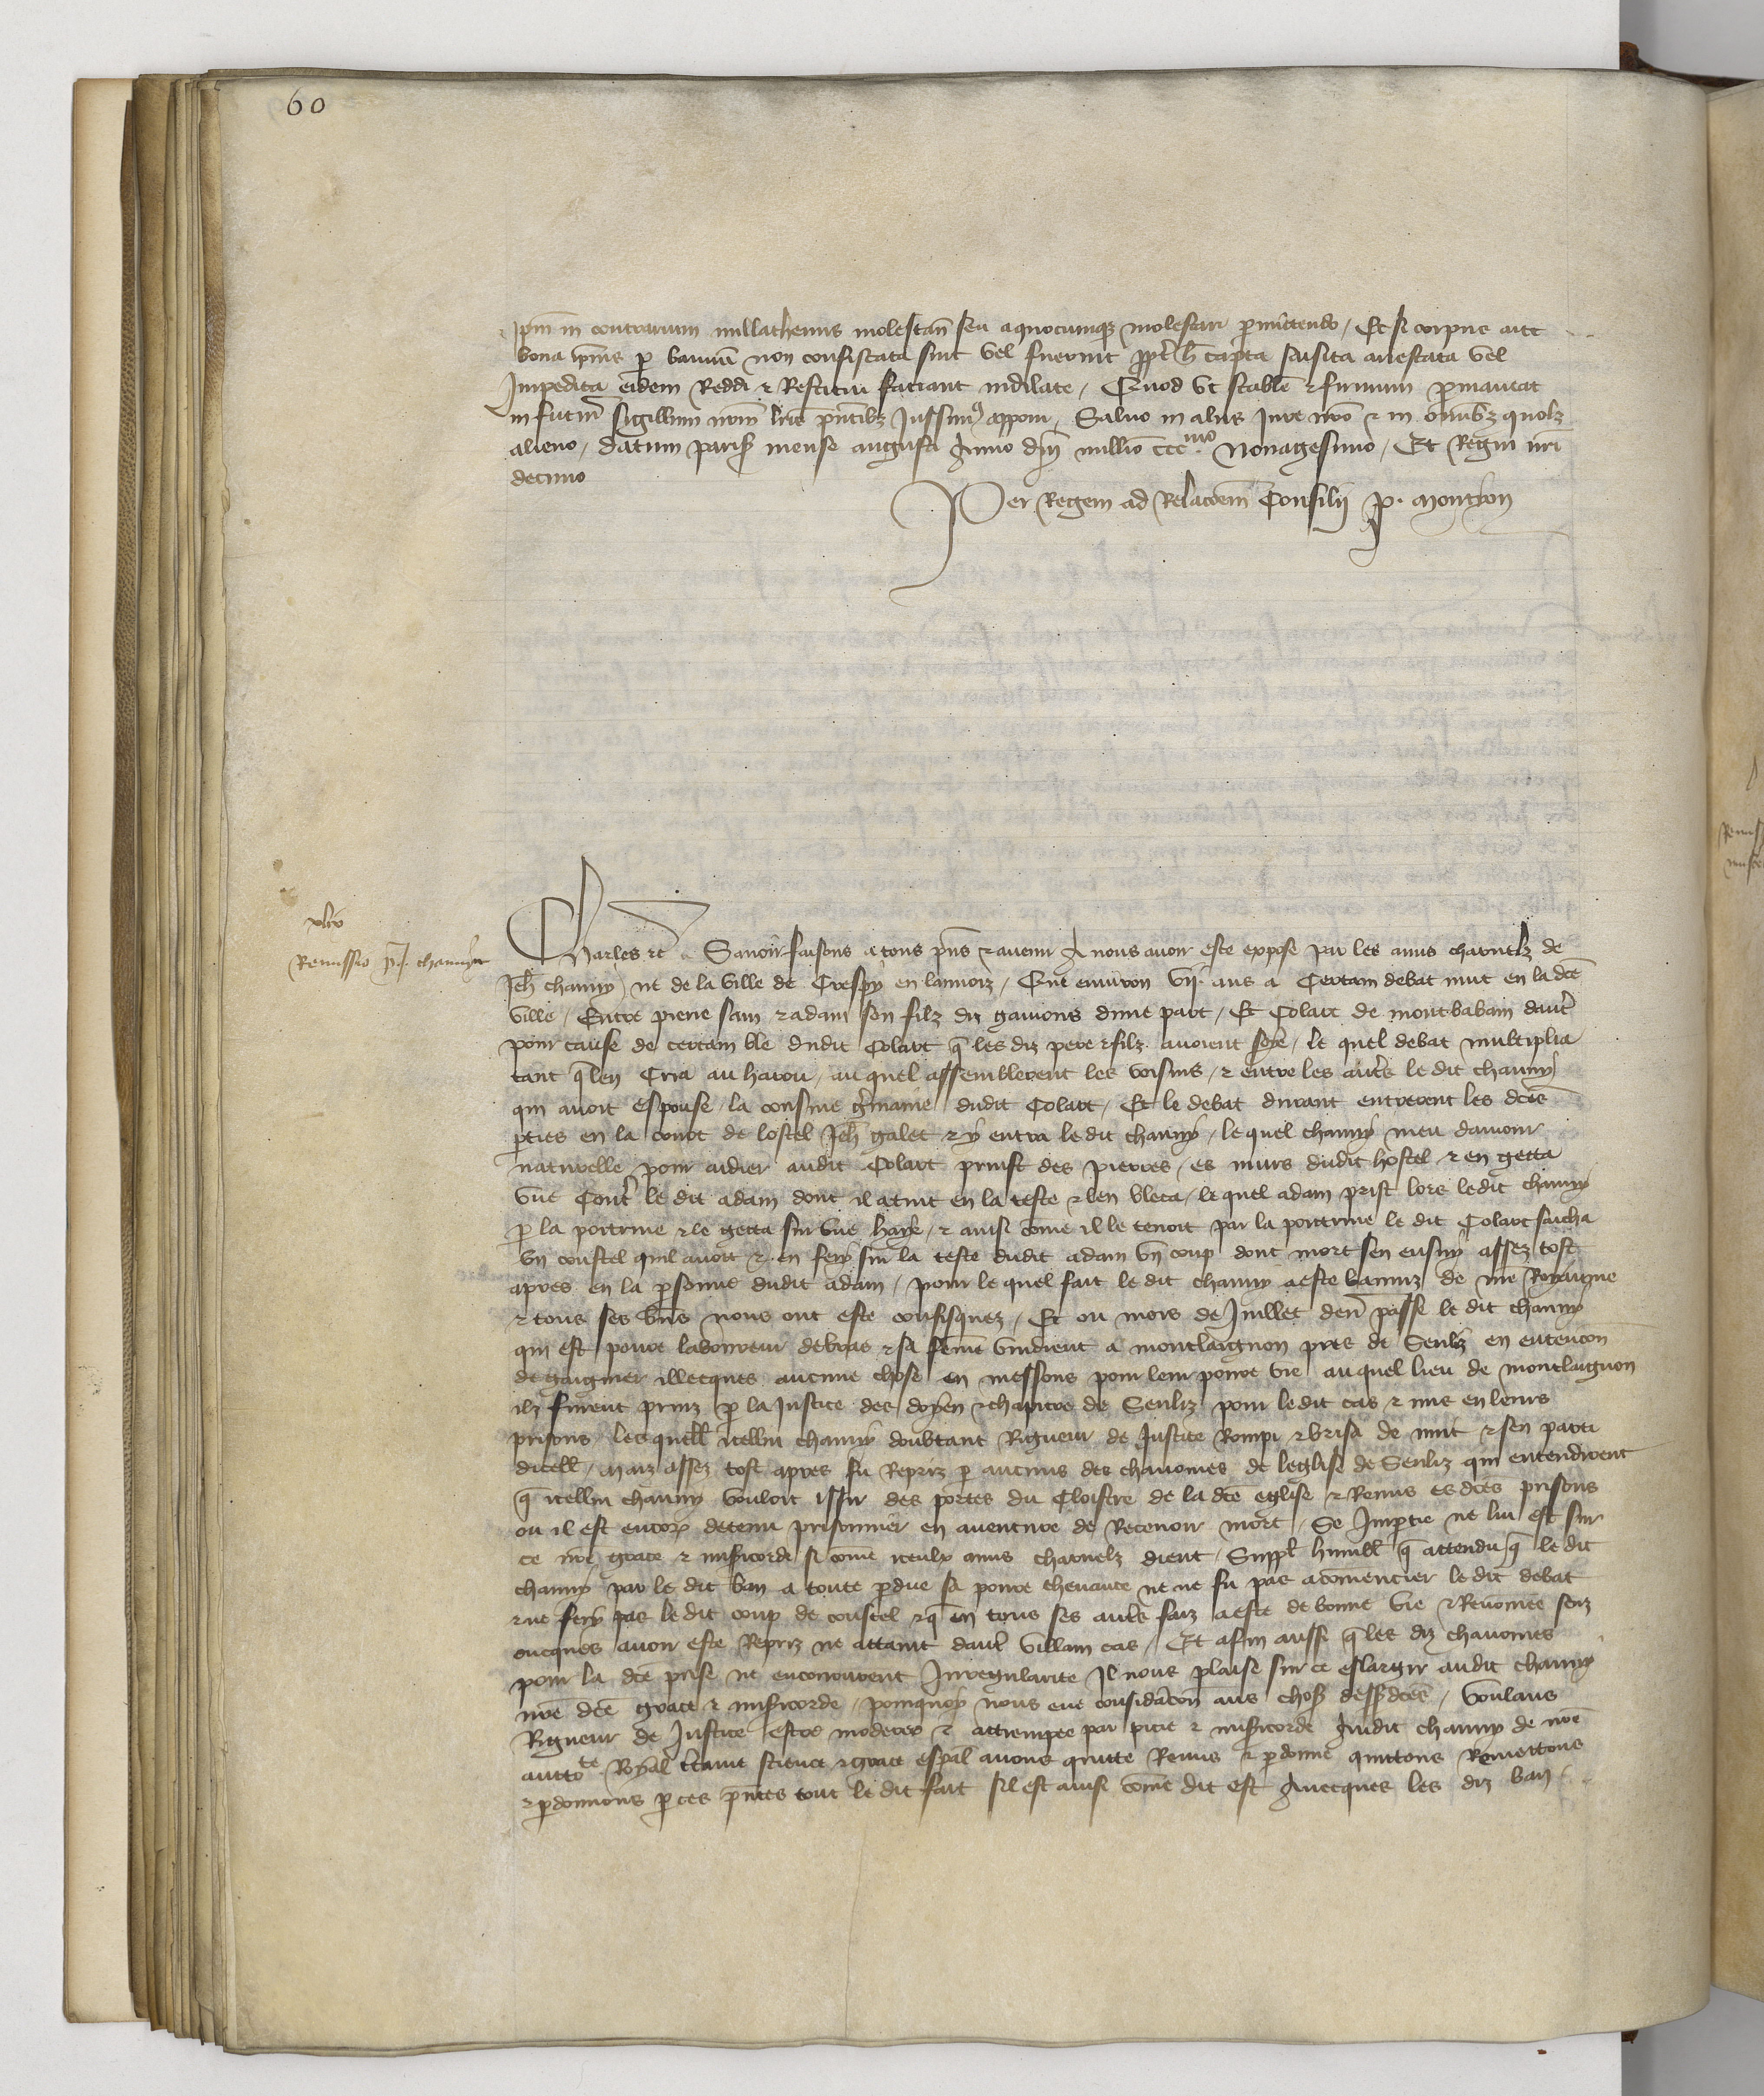 60
ipm in contrarium nullathenus molestan seu a quocumqz molestari pmittendo / Et si corpus aut
bona ipius p bannu non confiscata sint vel fuerint ppt h capta saisita arrestata vel
Impedita eidem Reddi & Restitui faciant indilate / Quod ut stabile & firmum pmaneat
in futur sigillum nrm lris pntibz Jussim9 apponi / Salvo in aliis Jure nro & in omibz quolz
alieno / datum paris mense augusti Anno dni millio ccc mo Nonagesimo / Et Regni nri
decimo
Per Regem ad Relacoem Consilii P. Montyon
Remissio p J. channy
Charles &c Savoir faisons a tous pns & avenir A nous avoir este expose par les amis charnelz de
Jeh channy ne de la ville de Crespy en lannoiz / Que environ vij. ans a Certain debat mut en la dce
ville / Entre pierre sain & adam son filz diz gavions dune part / Et Colart de montbabain daut
pour cause de certain ble dudit Colart q les diz pere & filz avoient soye / le quel debat multiplia
tant q len Cria au harou / au quel assemblerent les voisins / & entre les autrs le dit channy
qui avoit espouse la cousine gmaine dudit Colart / Et le debat durant entrerent les dces
pties en la court de lostel Jeh galet & y entra le dit channy / le quel channy meu damour
naturelle pour aidier audit Colart prinst des pierres es murs dudit hostel & en getta
une Cont le dit adam dont il atint en la teste & len bleca / le quel adam prist lors ledit channy
p la poitrine & le getta sur une haye / & ainsi come il le tenoit par la poitrine le dit Colart saicha
un coustel quil avoit & en fery sur la teste dudit adam un coup dont mort sen ensuy assez tost
apres en la psonne dudit adam / pour le quel fait le dit channy a este banniz de nre Royaume
& tous ses bns nous ont este confisquez / Et ou mois de Juillet den passe le dit channy
qui est povre laboureur de bras & sa feme vindrent a montlaignon pres de Senlz en entencon
de gaigner illecques aucune chose en messons pour leur povre vie au quel lieu de montlaignon
ilz furent prinz p la Justice des doyen & chapitre de Senliz pour ledit cas & mis en leurs
prisons / lesquell icellui channy doubtant Rigueur de Justice Rompi & brisa de nuit & sen parti
dicell / Maiz assez tost apres fu Repriz p aucuns des chanoines de leglise de Senliz qui entendirent
q icellui channy vouloit issir des portes du Cloistre de la dce eglise & Remis es dces prisons
ou il est encor detenu prisonnier en aventure de Recevoir mort / Se Impartie ne lui est sur
ce nre grace & misicorde si come iceulx amis charnelz dient / Suppl humbl q attendu q le dit
channy par le dit ban a toute pdue sa povre chevance ne ne fu pas a comencier le dit debat
& ne fery pas le dit coup de coustel & q en tous ses autrs faiz a este de bonne vie & Renomee senz
oncques avoir este Repriz ne attaint daut villain cas / Et afin aussi q les diz chanoines
pour la dce prise ne encourent Irregularite Il nous plaise sur ce eslargir audit channy
nre dce grace & misicorde / pourquoy nous eue consideracon aus chos dessdces / voulans
Rigueur de Justice estre moderee & attrempee par pitie & misicorde Audit channy de nre
autto te Royal ctaine science & grace espal avons quitte Remis & pdonne quittons Remettons
& pdonnons p ces pntes tout le dit fait sil est ainsi come dit est Avecques les diz ban